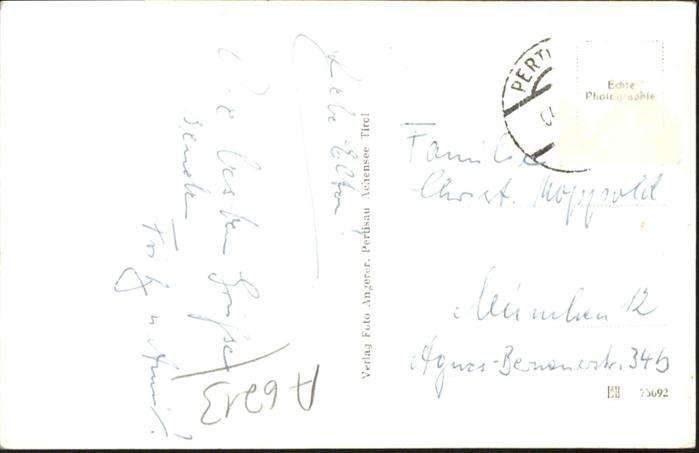 Liebe Eltern!
Die besten Grüße
senden
Fritz u.
A 6213
Verlag Foto Angerer, Pertisau Achensee Tirol
PERTI
Echte
Photographie
Familie
Christ.
München 12
Agnes-Bernauerstr. 34b
75692